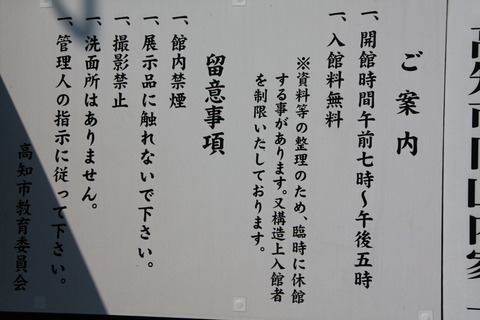 高知市旧山内家
ご案内
一、開館時間午前七時〜午後五時
一、入館料無料
※資料等の整理のため、臨時に休館
する事があります。又構造上入館者
を制限いたしております。
留意事項
一、館内禁煙
一、展示品に触れないで下さい。
一、撮影禁止
一、洗面所はありません。
一、管理人の指示に従って下さい。
高知市教育委員会